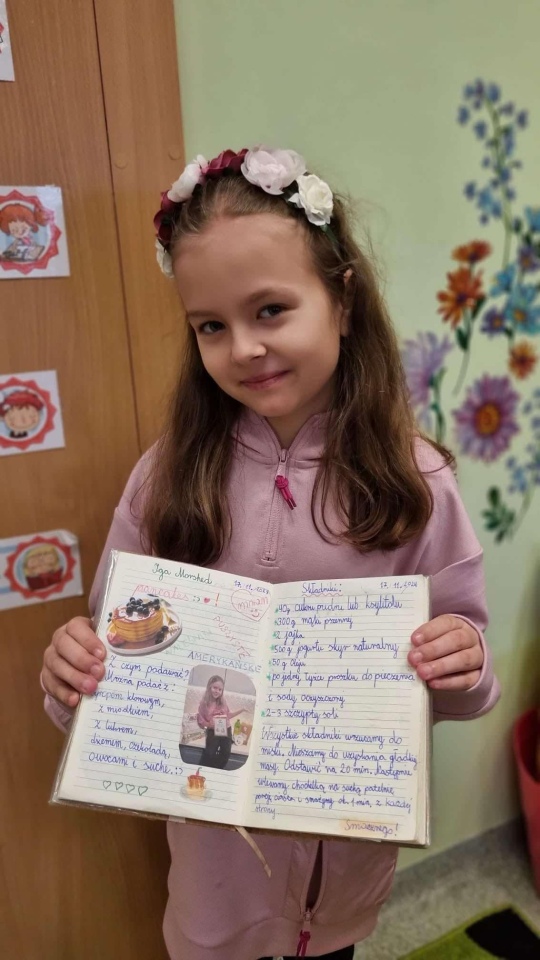 Iga Morshed 17.11.2024
pancakes :) !
mniam
PUSZYSTE
AMERYKAŃSKIE
Z czym podawać?
Można podać z:
syropem klonowym,
z miodkiem,
z lukrem,
dżemem, czekoladą,
owocami i suche. :)
Składniki: 17.11.2024
40g cukru pudru lub ksylitolu
300g mąki pszennej
2 jajka
500g jogurtu skyr naturalny
50g oleju
po jednej łyżce proszku do pieczenia
i sody oczyszczonej
2-3 szczypty soli
Wszystkie składniki wrzucamy do
miski. Mieszamy do uzyskania gładkiej
masy. Odstawić na 20 min. Następnie
wlewamy chochelką na suchą patelnię
i smażymy ok. 1 min. z każdej
strony
Smacznego!